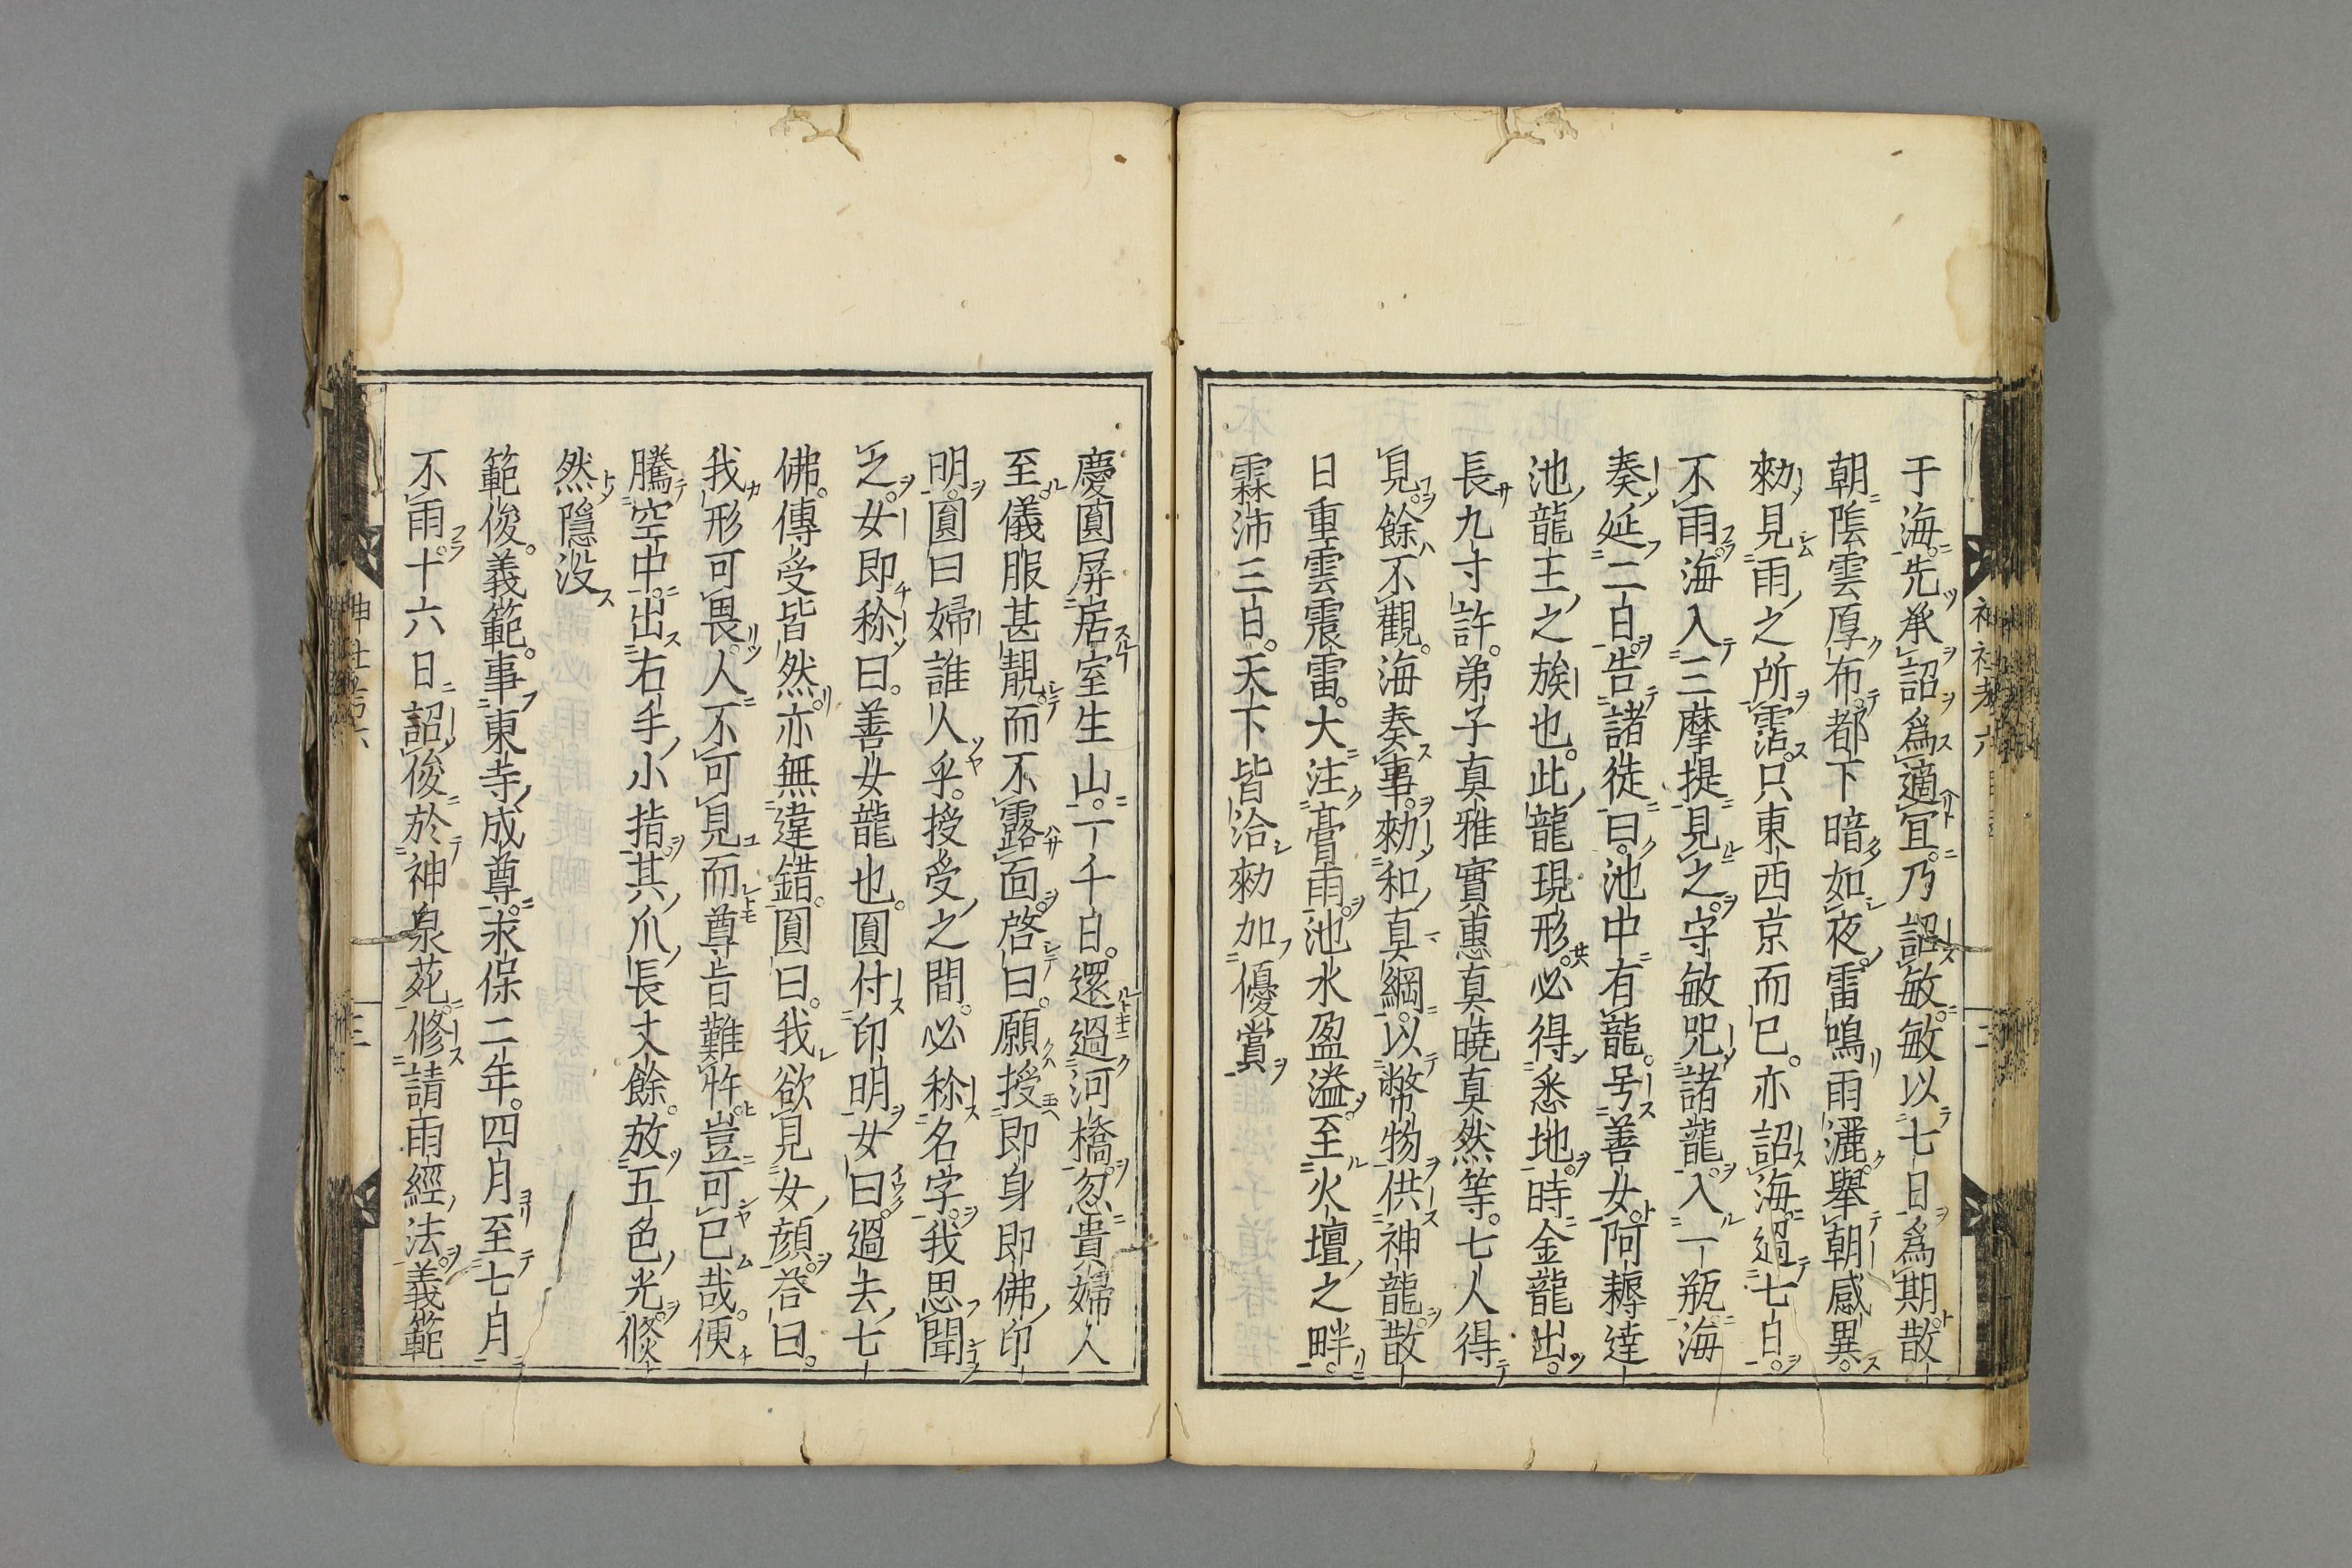 于海先承詔爲適宜乃詔敏敏以七日爲期散
朝陰雲厚布都下暗如夜雷鳴雨灑擧朝感異
勅見雨之所霑只東西京而已亦詔海過七日
不雨海入三摩提見之守敏咒諸龍入一瓶海
奏延二日告諸徒曰池中有龍号善女阿耨達
池龍王之族也此龍現形必得悉地時金龍出
長九寸許弟子真雅實惠真曉真然等七人得
見餘不觀海奏事勅和真綱以幣物供神龍散
日重雲震雷大注膏雨池水盈溢至火壇之畔
霖沛三日天下皆洽勅加優賞
慶圓屏居室生山一千日還過河橋忽貴婦人
至儀服甚靚而不露面啓曰願授即身即佛印
明圓曰婦誰人乎授受之間必称名字我思聞
之女即称曰善女龍也圓付印明女曰過去七
佛傳受皆然亦無違錯圓曰我欲見女顔荅曰
我形可畏人不可見而尊旨難忤豈可已哉便
騰空中出右手小指其爪長丈餘放五色光倐
然隱没
範俊義範事東寺成尊永保二年四月至七月
不雨十六日詔俊於神泉苑修請雨經法義範
神社考六
二
神社考六
三